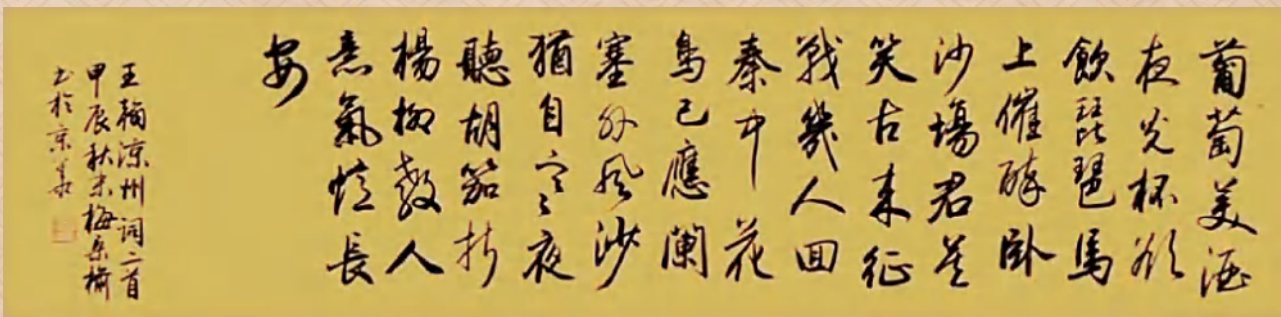 葡萄美酒
夜光杯欲
飲琵琶馬
上催醉卧
沙場君莫
笑古来征
戰幾人回
秦中花
鳥已應闌
塞外風沙
猶自寒夜
聽胡笳折
楊柳教人
意氣憶長
安
王翰涼州词二首
甲辰秋末梅桑榆
书於京華